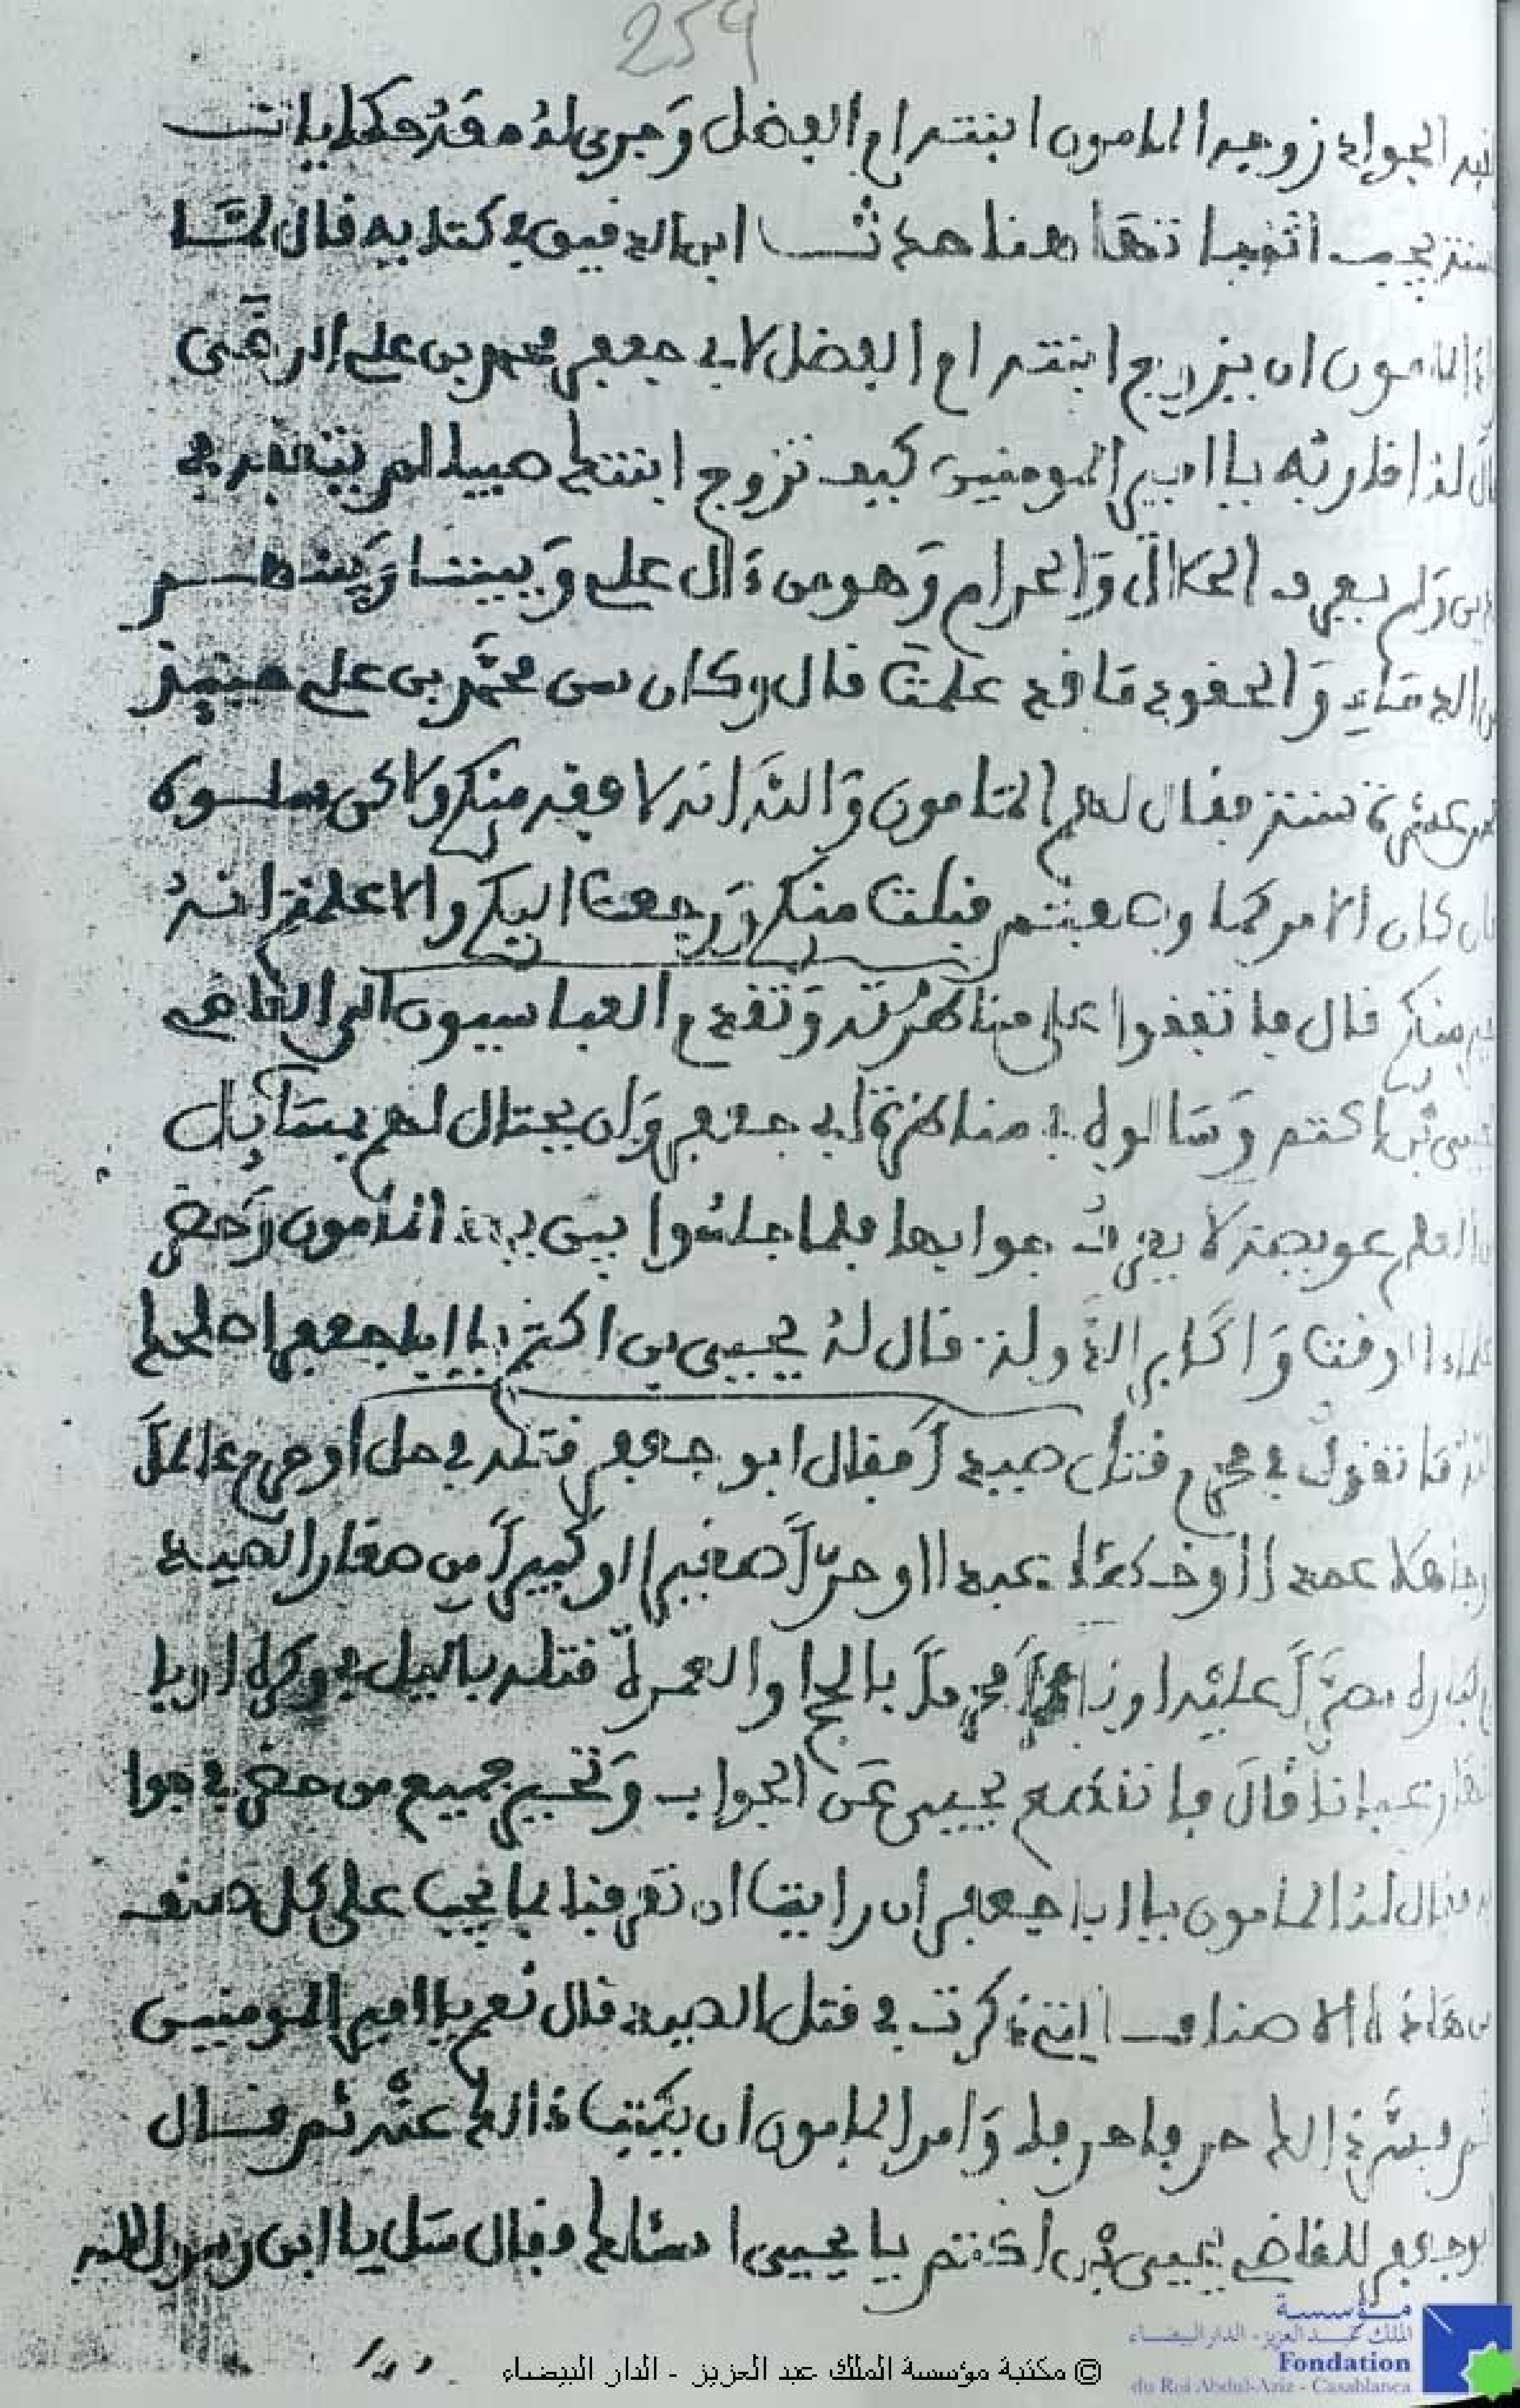 259
الجواد زوجه المامون ابنته ام الفضل وَجرى له معَهُ حكايات
ابن الرفيق في كتابه قال لمَّا
المامون ان يزوج ابنته ام الفضل لابي جعفر محمد بن علي الرضى
قال له اقاربه يا امير المومنين كيف تزوج ابنتك صبيا لم يتفقه في
الدين وَلم يعرف الحلال وَالحرام وَهو من ءال علي وَبيننا وَبينهم
من الدماء وَالحقود مَا قد علمتَ قال وكان سن محمد بن علي حينئذ
عشرة سنة فقال لهم المَامون وَالله انه لا فقه منكم ولاكن سلوه
فان كان الامر كما وصفتم قبلت منكم وَرجعت اليكم والا علمتم انه
منكم قال فاتفقوا على مناظرته وَتقدم العباسيون الى القاضي
يحيى بن اكتم وَسَالوه في مناظرة ابي جعفر وَان يحتال لهم بمسَايل
العلم عويصة لا يعرف جوابها فلما جلسُوا بين يدي المامون وَحضر
علماء الوقت وَاكابر الدولة قال له يحيى بن اكتم يا ابا جعفر اصلحك
الله مَا تقول في محرم قتل صيدا فقال ابو جعفر قتله في حل او حرم عالمًا
او جاهلا عمدا او خطأ عبدا او حرّا صغيرا او كبيرًا من صغار الصيد
او كباره مصرًّا عليه او نادمًا محرمًا بالحج او العمرة قتله بالليل في وكره او بالنهار
عيانا قال فانقطع يحيى عَن الجواب وَتحير جميع من حضر في جوابه
فقال له المامون يا ابا جعفر ان رايت ان تعرفنا بما يجب على كل صنف
من هاذه الاصناف التي ذكرت في قتل الصيد قال نعم يا امير المومنين
ثم فسّر ذالك حرفا حرفا وَامر المامون ان يكتب ذالك عنه ثم قال
ابو جعفر للقاضي يحيى بن اكتم يا يحيى اسئالك فقال سَل يا ابن رسول الله
© مكتبة مؤسسة الملك عبد العزيز - الدار البيضاء
مؤسسة
الملك عبد العزيز - الدار البيضاء
Fondation
du Roi Abdul-Aziz - Casablanca